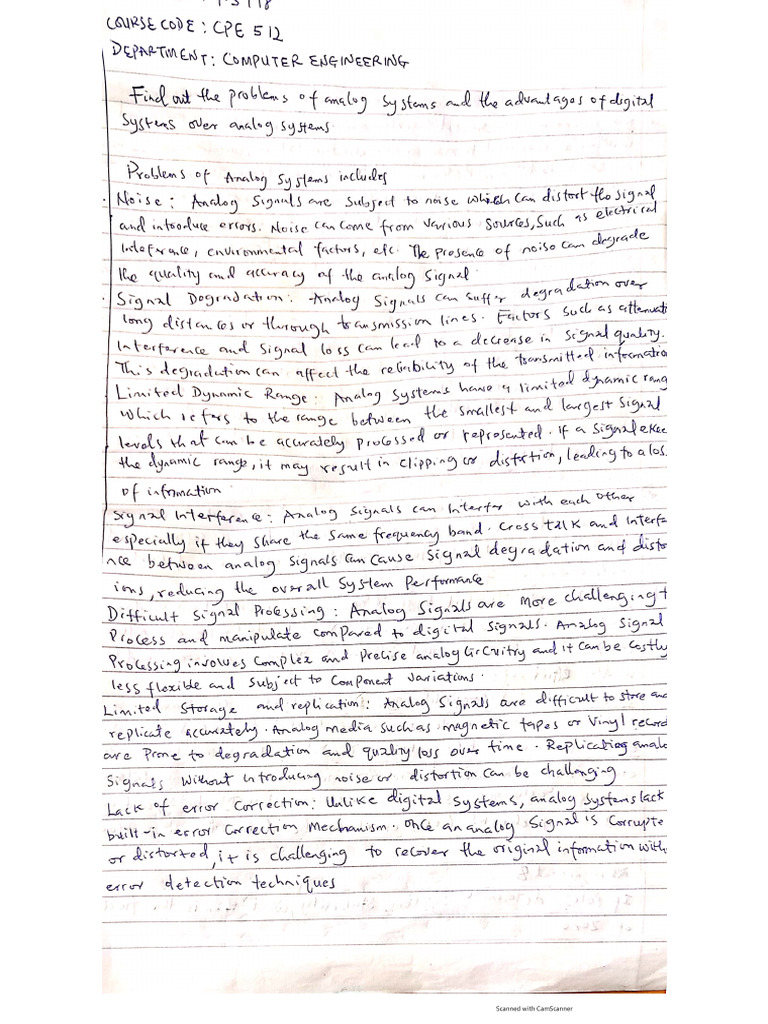 COURSE CODE: CPE 512
DEPARTMENT: COMPUTER ENGINEERING
Find out the problems of analog systems and the advantages of digital
systems over analog systems.
Problems of Analog Systems includes
· Noise: Analog Signals are subject to noise which can distort the signal
and introduce errors. Noise can come from various sources, such as electrical
inteference, environmental factors, etc. The presence of noise can degrade
the quality and accuracy of the analog signal.
· Signal Degradation: Analog Signals can suffer degradation over
long distances or through transmission lines. Factors such as attenuati
interference and signal loss can lead to a decrease in signal quality.
This degradation can affect the reliability of the transmitted informatio
Limited Dynamic Range: Analog Systems have a limited dynamic rang
which refers to the range between the smallest and largest signal
levels that can be accurately processed or represented. If a signal excee
the dynamic range, it may result in clipping or distortion, leading to a los
of information.
Signal Interference: Analog signals can interfer with each other
especially if they share the same frequency band. Cross talk and interfe
nce between analog signals can cause signal degradation and disto
ions, reducing the overall system performance
Difficult Signal Processing: Analog Signals are more challenging t
Process and manipulate compared to digital signals. Analog signal
Processing involves complex and precise analog circuitry and it can be costly
less flexible and subject to component variations.
Limited Storage and replication: Analog Signals are difficult to store and
replicate accurately. Analog media such as magnetic tapes or vinyl record
are prone to degradation and quality loss over time. Replicating analo
Signals without introducing noise or distortion can be challenging.
Lack of error Correction: Unlike digital systems, analog systems lack
built-in error correction mechanism. Once an analog signal is corrupte
or distorted, it is challenging to recover the original information with
error detection techniques
Scanned with CamScanner